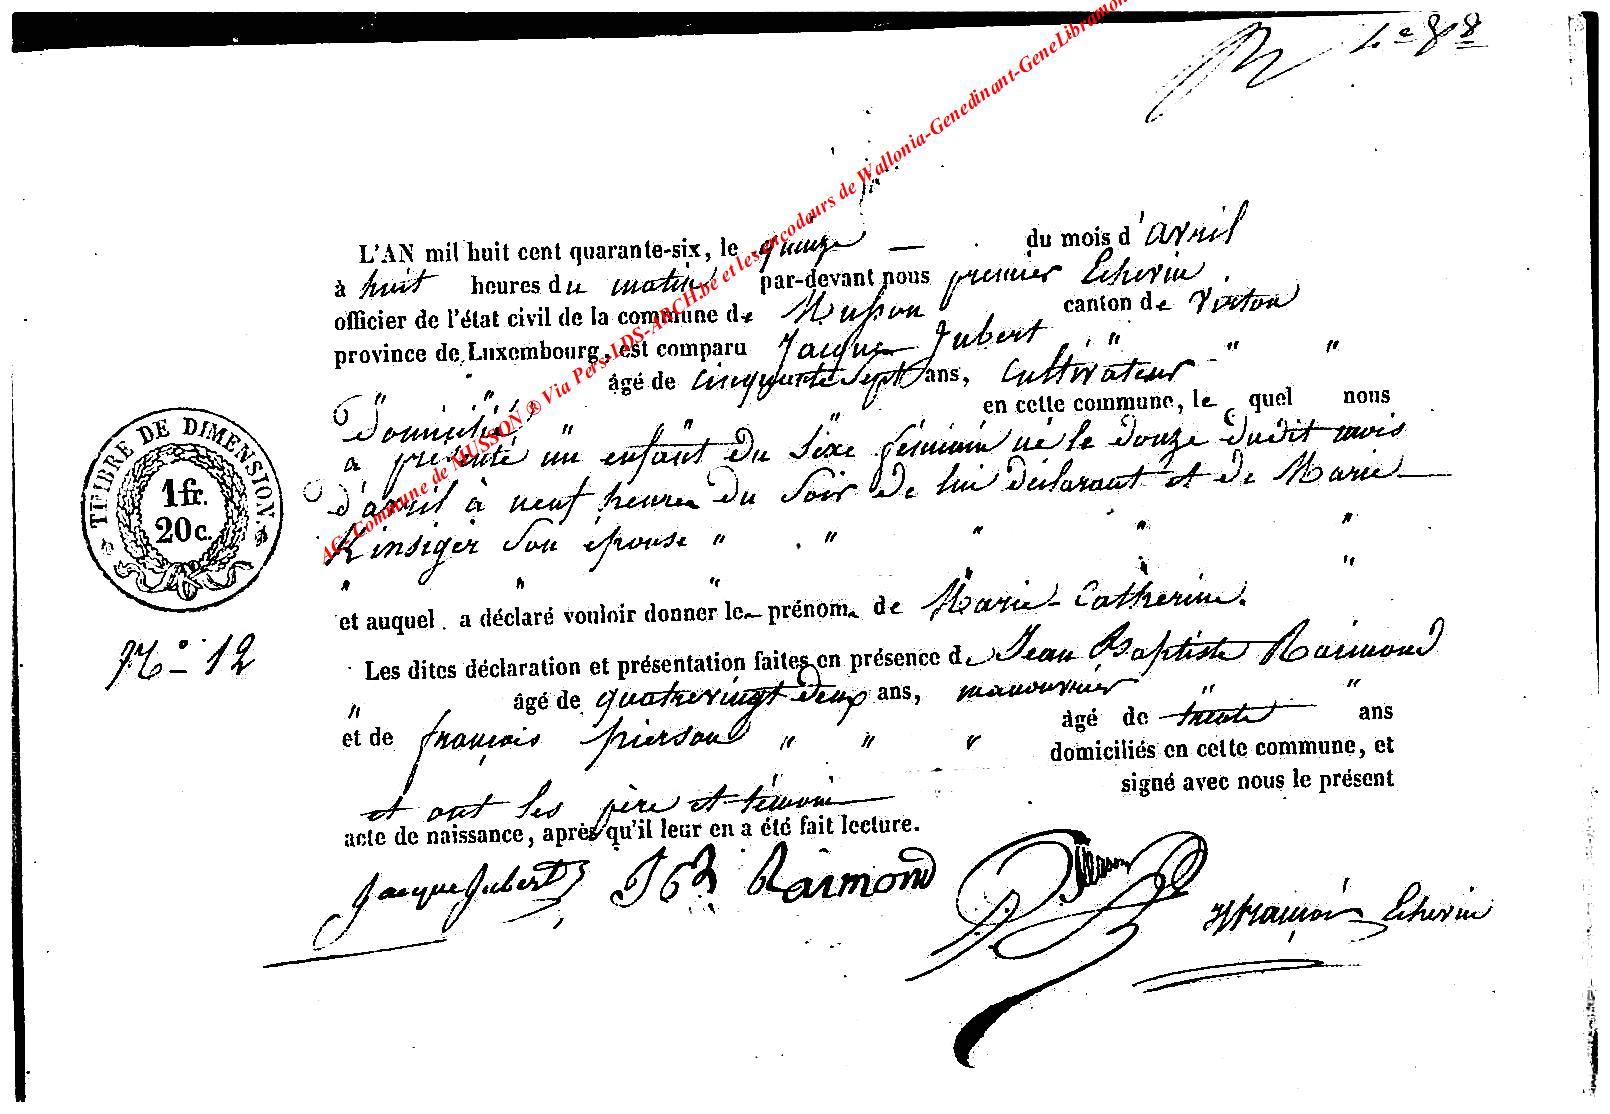 1e 88
AC: Commune de MUSSON ® Via Pers-LDS-ARCH.be et les encodeurs de Wallonia-Genedinant-GeneLibramon
L'AN mil huit cent quarante-six, le quinze — du mois d'avril
à huit heures du matin par-devant nous premier Echevin
officier de l'état civil de la commune de Musson canton de Virton
province de Luxembourg, est comparu Jacque Jubert " " "
" " âgé de cinquante sept ans, Cultivateur
Domicilié " " " en cette commune, le quel nous
a présenté un enfant du sexe féminin né le douze dudit mois
d'avril à neuf heures du soir de lui déclarant et de Marie
Kinsiger son épouse " " " " "
" " " "
et auquel a déclaré vouloir donner le prénom de Marie-Catherine.
TIMBRE DE DIMENSION.
1 fr.
20 c.
No 12
Les dites déclaration et présentation faites en présence de Jean Baptiste Raimond
" âgé de quatrevingt deux ans, manouvrier " "
et de françois pierson " " " âgé de trente ans
domiciliés en cette commune, et
et ont les père et témoin signé avec nous le présent
acte de naissance, après qu'il leur en a été fait lecture.
Jacque Jubert JB Raimond Pierson françois Echevin